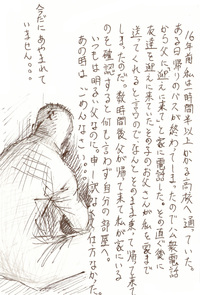 16年前、私は一時間半以上かかる高校へ通っていた。
ある日帰りのバスが終わってしまったので公衆電話
から父に迎えに来てと家に電話した。その直ぐ後に
友達を迎えに来ていたその子のお父さんが私を家まで
送ってくれると言うので なんとそのまま乗って帰って来て
しまったのだ。数時間後父が帰って来て私が家にいる
のを確認すると何も言わず自分の部屋へ。
いつもは明るい父なのに。申し訳なくて仕方なかった。
あの時は「ごめんなさい」。。。
今だにあやまれて
いません。。。